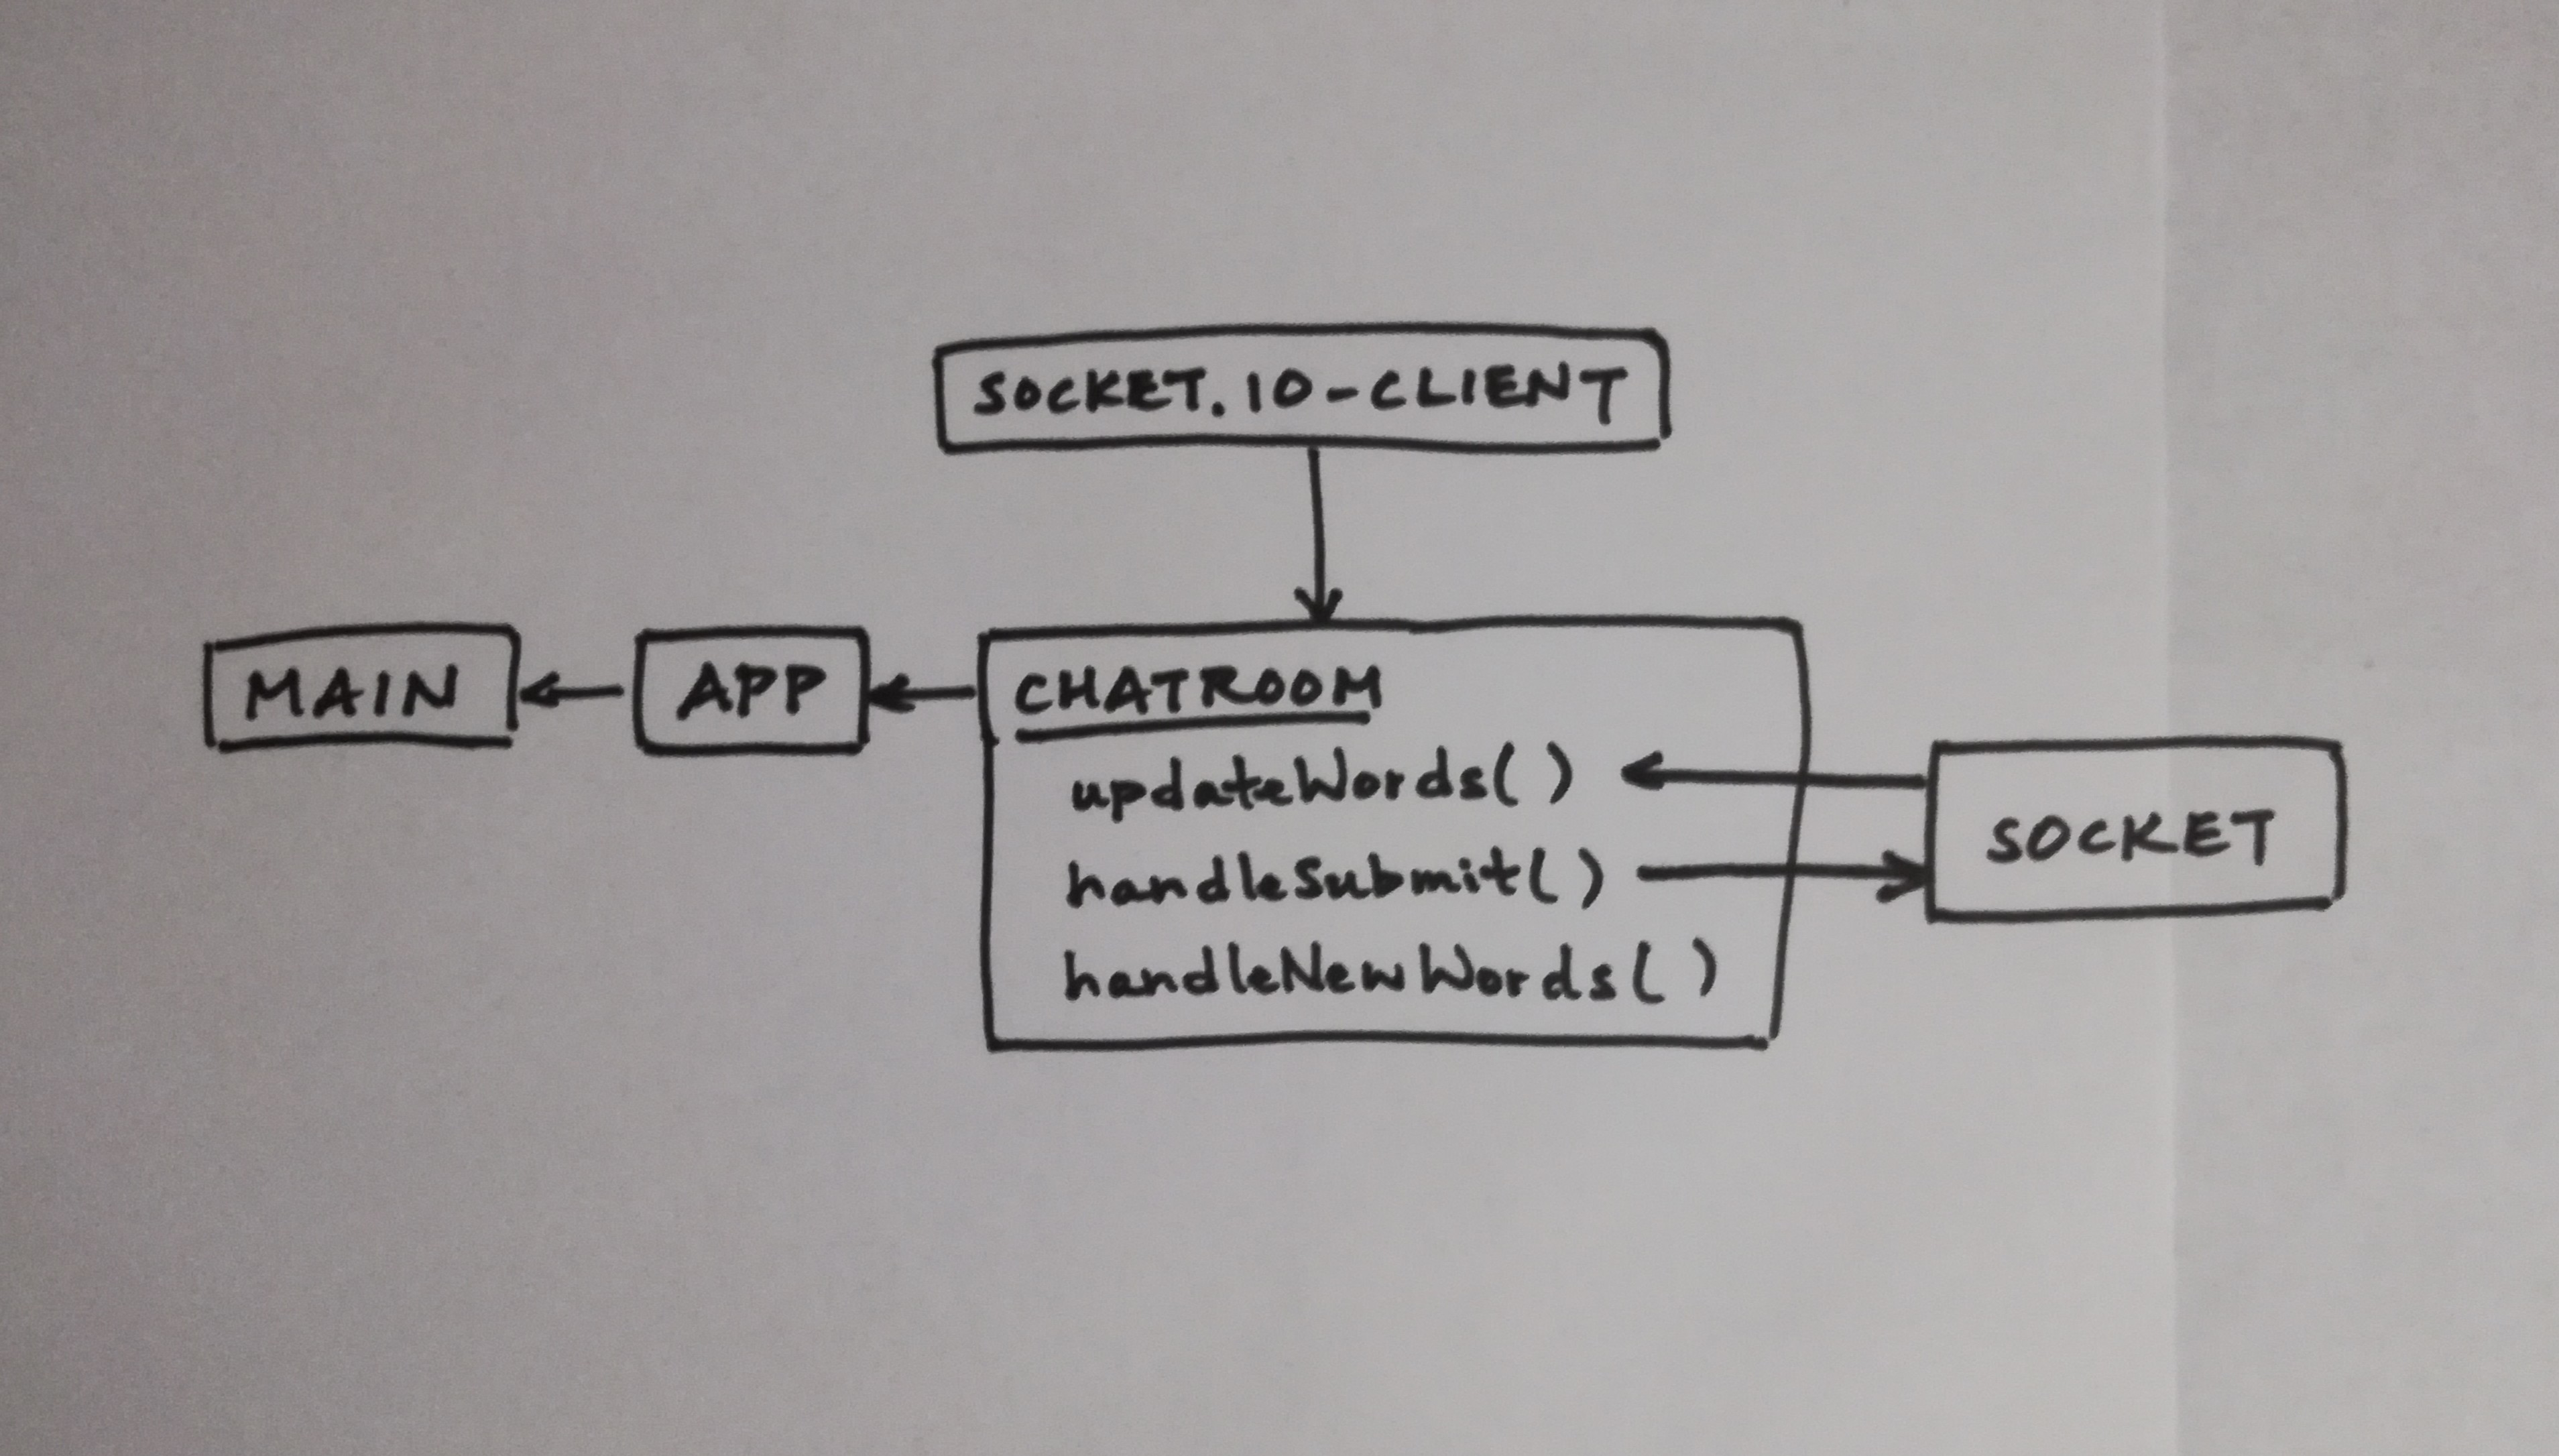 SOCKET.IO-CLIENT
MAIN
APP
CHATROOM
updateWords()
handleSubmit()
handleNewWords()
SOCKET